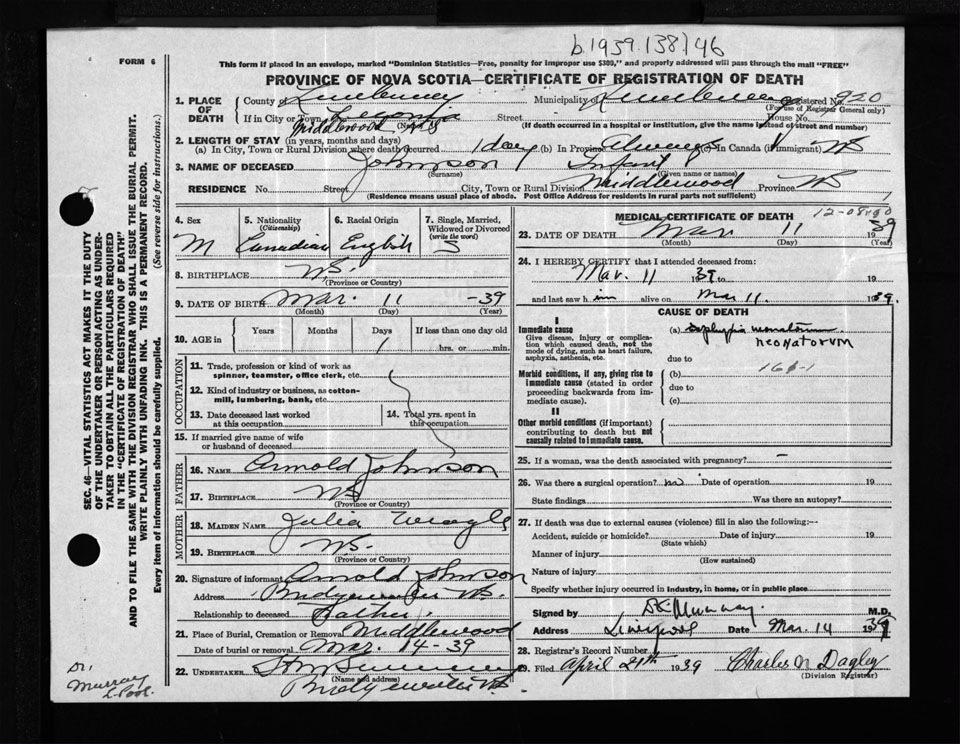 b.1939.138146
FORM 6
This form if placed in an envelope, marked "Dominion Statistics—Free, penalty for improper use $300," and properly addressed will pass through the mail "FREE"
PROVINCE OF NOVA SCOTIA—CERTIFICATE OF REGISTRATION OF DEATH
1. PLACE OF DEATH County of Lunenburg Municipality of Lunenburg Registered No. 920
(For use of Registrar General only)
If in City or Town Street House No.
Middlewood NS (Name) (If death occurred in a hospital or institution, give the name instead of street and number)
2. LENGTH OF STAY (in years, months and days)
(a) In City, Town or Rural Division where death occurred 1 day (b) In Province Always (c) In Canada (if immigrant)
3. NAME OF DECEASED Johnson Infant
(Surname) (Given name or names)
RESIDENCE No. Street City, Town or Rural Division Middlewood Province NS
(Residence means usual place of abode. Post Office Address for residents in rural parts not sufficient) 1
SEC. 46—VITAL STATISTICS ACT MAKES IT THE DUTY
OF THE UNDERTAKER OR PERSON ACTING AS UNDER-
TAKER TO OBTAIN ALL THE PARTICULARS REQUIRED
IN THE "CERTIFICATE OF DEATH"
AND TO FILE THE SAME WITH THE DIVISION REGISTRAR WHO SHALL ISSUE THE BURIAL PERMIT.
WRITE PLAINLY WITH UNFADING INK. THIS IS A PERMANENT RECORD.
Every item of information should be carefully supplied. (See reverse side for instructions.)
4. Sex
M
5. Nationality
(Citizenship)
Canadian
6. Racial Origin
English
7. Single, Married, Widowed or Divorced
(write the word)
S
8. BIRTHPLACE N.S.
(Province or Country)
9. DATE OF BIRTH Mar. 11 -39
(Month) (Day) (Year)
10. AGE in Years Months Days If less than one day old
1 hrs. or min.
OCCUPATION
11. Trade, profession or kind of work as
spinner, teamster, office clerk, etc.
12. Kind of industry or business, as cotton-
mill, lumbering, bank, etc.
13. Date deceased last worked
at this occupation
14. Total yrs. spent in
this occupation
15. If married give name of wife
or husband of deceased
FATHER
16. NAME Arnold Johnson
17. BIRTHPLACE NS
(Province or Country)
MOTHER
18. MAIDEN NAME Julia
19. BIRTHPLACE N.S.
(Province or Country)
20. Signature of informant Arnold Johnson
Address Bridgewater NS.
Relationship to deceased Father
21. Place of Burial, Cremation or Removal Middlewood
Date of burial or removal Mar. 14-39
22. UNDERTAKER
(Name and address)
Bridgewater NS.
Dr.
Murray
L'Pool.
MEDICAL CERTIFICATE OF DEATH
23. DATE OF DEATH Mar 11 1939
(Month) (Day) (Year)
24. I HEREBY CERTIFY that I attended deceased from:
Mar. 11 1939 to 19
and last saw him alive on Mar 11. 1939.
CAUSE OF DEATH
I
Immediate cause
Give disease, injury or complica-
tion which caused death, not the
mode of dying, such as heart failure,
asphyxia, asthenia, etc.
(a) Asphyxia neonatorum
neonatorum
due to
Morbid conditions, if any, giving rise to
immediate cause (stated in order
proceeding backwards from im-
mediate cause).
(b) 161-1
due to
(c)
II
Other morbid conditions (if important)
contributing to death but not
causally related to immediate cause.
25. If a woman, was the death associated with pregnancy? —
26. Was there a surgical operation? no Date of operation 19
State findings Was there an autopsy?
27. If death was due to external causes (violence) fill in also the following:—
Accident, suicide or homicide? Date of injury 19
(State which)
Manner of injury
(How sustained)
Nature of injury
Specify whether injury occurred in industry, in home, or in public place
Signed by Murray. M.D.
Address Liverpool Date Mar. 14 1939
28. Registrar's Record Number
29. Filed April 21th 1939 Charles N Dagley
(Division Registrar)